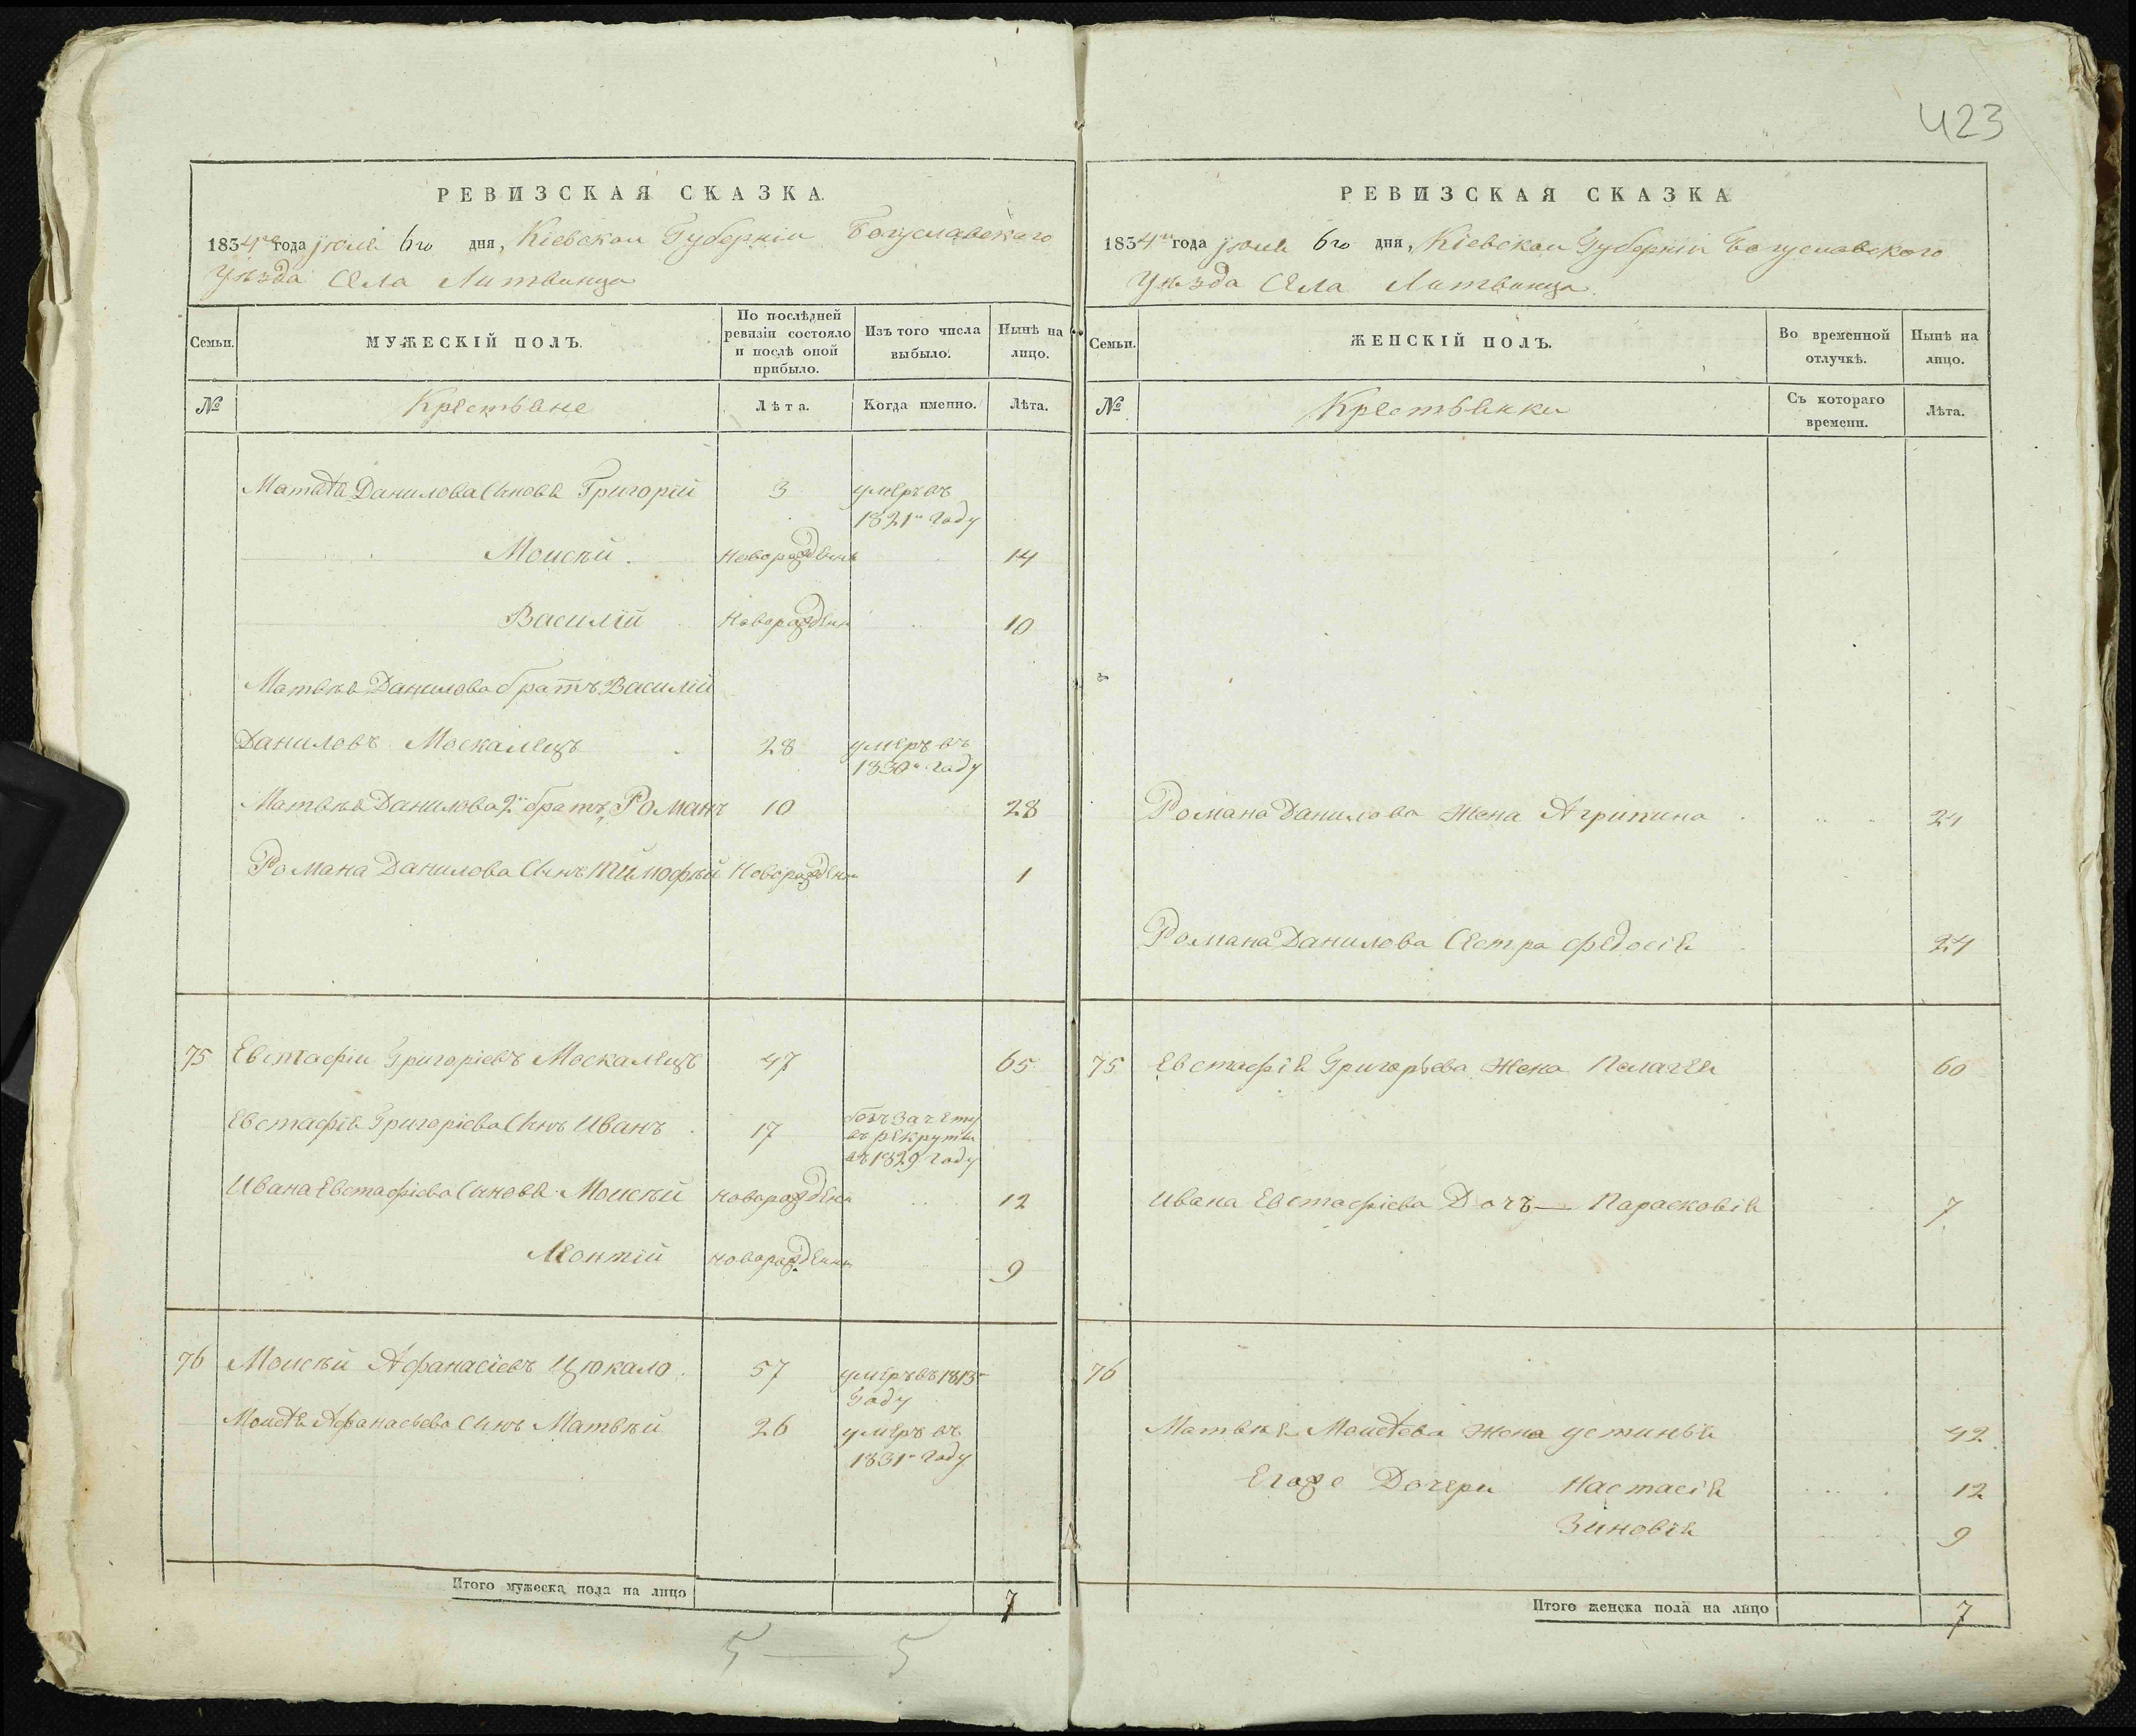 423
РЕВИЗСКАЯ СКАЗКА.
1834го года июля 6го дня, Кіевской Губерніи Богуславского
Уѣзда Села Литвинца
Семьи.
МУЖЕСКІЙ ПОЛЪ.
По послѣдней ревизіи состояло и послѣ оной прибыло.
Изъ того числа выбыло.
Нынѣ на лицо.
№
Крестьяне
Лѣта.
Когда именно.
Лѣта.
Матвѣя Данилова Сыновя Григорій 3 умеръ въ
1821м Году
Моисѣй новорожденъ 14
Василій новорожден 10
Матвѣя Данилова братъ Василій
Даниловъ Москалецъ 28 умеръ въ
1830м Году
Матвѣя Данилова 2й братъ, Романъ 10 28
Романа Данилова Сынъ Тимофѣй Новорожден 1
75 Евстафіи Григоріевъ Москалецъ 47 65
Евстафія Григоріева Сынъ Иванъ 17 безъ зачету
въ рекруты
въ 1829 Году
Ивана Евстафіева Сыновя Моисѣй новорожден 12
Леонтій новорожденн 9
76 Моисѣй Афанасіевъ Цюкало 57 умеръ въ 1813
Году
Моисѣя Афанасьева Сынъ Матвѣй 26 умеръ въ
1831м Году
Итого мужеска пола на лицо 7
5 — 5
РЕВИЗСКАЯ СКАЗКА
1834го года июля 6го дня, Кіевской Губерніи Богуславского
Уѣзда Села Литвинца
Семьи.
ЖЕНСКІЙ ПОЛЪ.
Во временной отлучкѣ.
Нынѣ на лицо.
№
Крестьянки
Съ котораго времени.
Лѣта.
Романа Данилова жена Агрипина 21
Романа Данилова Сестра Федосія 24
75 Евстафія Григорьева жена Пелагея 60
Ивана Евстафіева Дочъ — Парасковія 7
76
Матвѣя Моисѣева жена устинья 42
Егоже Дочери Настасія 12
Зиновія 9
Итого женска пола на лицо 7